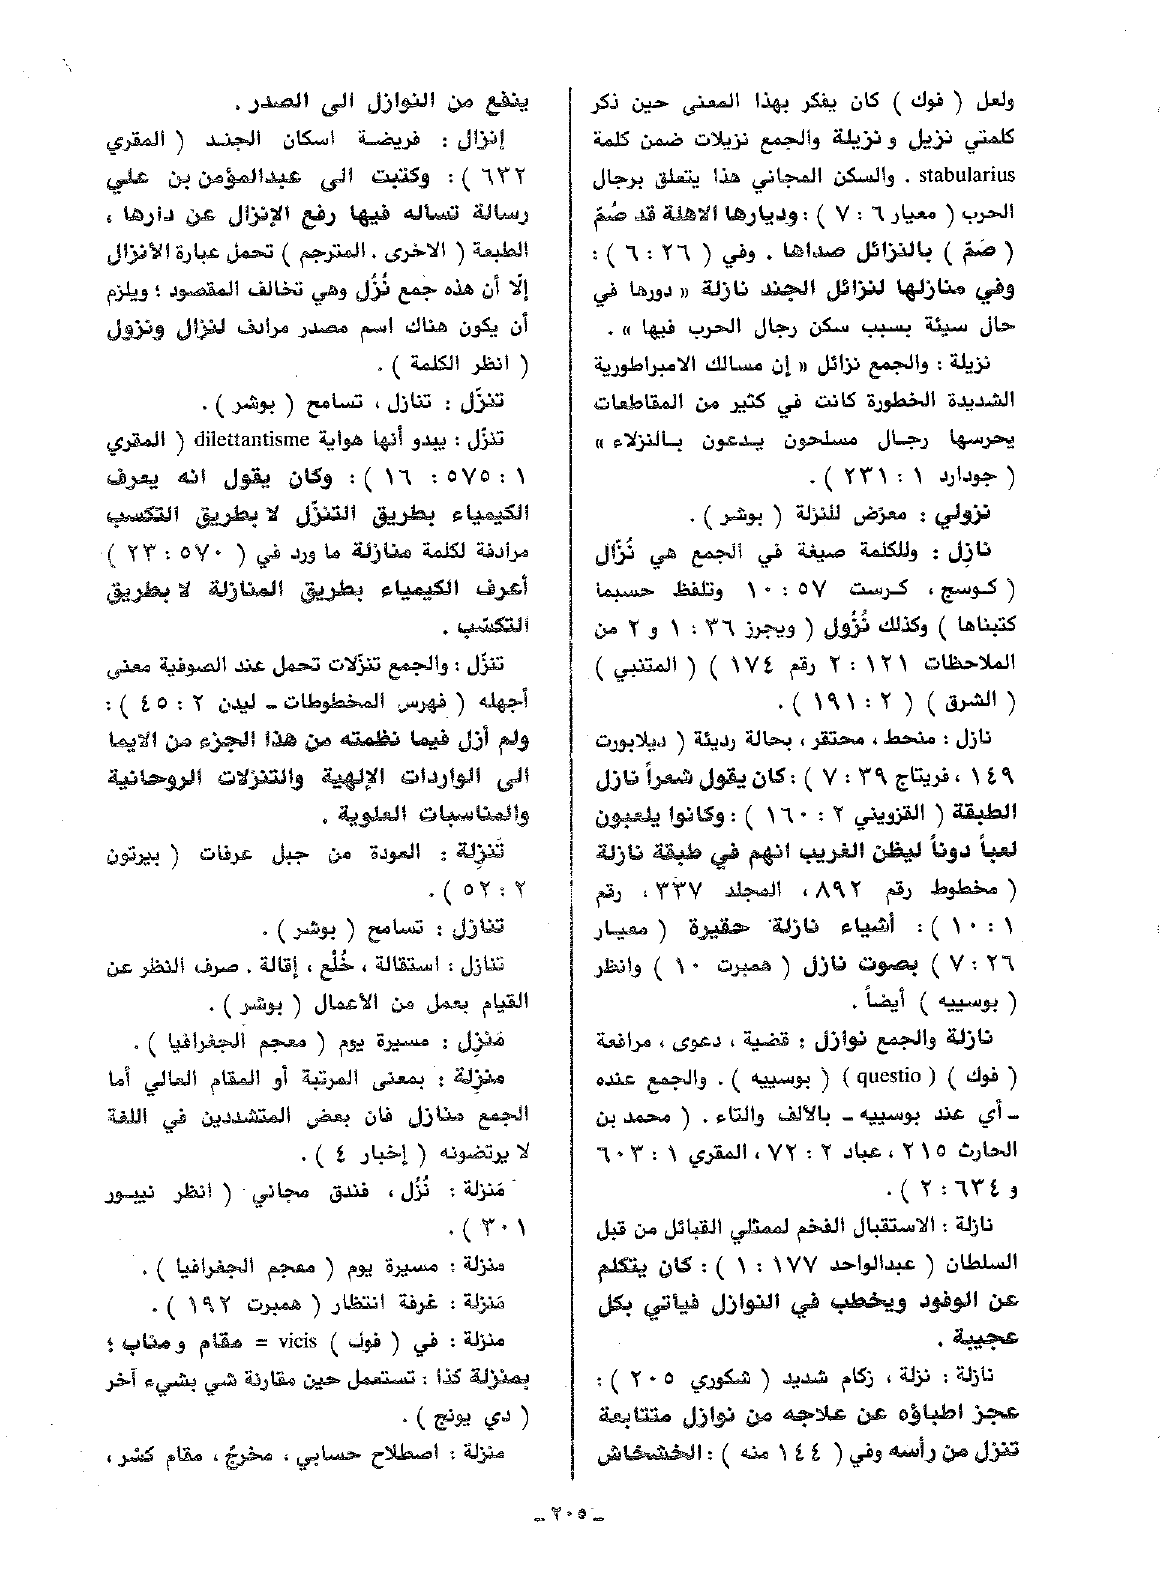 ولعل ( فوك ) كان يفكر بهذا المعنى حين ذكر
كلمتي نزيل و نزيلة والجمع نزيلات ضمن كلمة
stabularius . والسكن المجاني هذا يتعلق برجال
الحرب ( معيار ٦ : ٧ ) : وديارها الاهلة قد صُمّ
( صَمّ ) بالنزائل صداها . وفي ( ٢٦ : ٦ ) :
وفي منازلها لنزائل الجند نازلة « دورها في
حال سيئة بسبب سكن رجال الحرب فيها » .
نزيلة : والجمع نزائل « إن مسالك الامبراطورية
الشديدة الخطورة كانت في كثير من المقاطعات
يحرسها رجال مسلحون يدعون بالنزلاء »
( جودارد ١ : ٢٣١ ) .
نزولي : معرّض للنزلة ( بوشر ) .
نازِل : وللكلمة صيغة في الجمع هي نُزّال
( كوسج ، كرست ٥٧ : ١٠ وتلفظ حسبما
كتبناها ) وكذلك نُزُول ( ويجرز ٣٦ : ١ و ٢ من
الملاحظات ١٢١ : ٢ رقم ١٧٤ ) ( المتنبي )
( الشرق ) ( ٢ : ١٩١ ) .
نازل : منحط ، محتقر ، بحالة رديئة ( ديلابورت
١٤٩ ، فريتاج ٣٩ : ٧ ) : كان يقول شعراً نازل
الطبقة ( القزويني ٢ : ١٦٠ ) : وكانوا يلعبون
لعباً دوناً ليظن الغريب انهم في طبقة نازلة
( مخطوط رقم ٨٩٢ ، المجلد ٣٣٧ ، رقم
١ : ١٠ ) : أشياء نازلة حقيرة ( معيار
٢٦ : ٧ ) بصوت نازل ( همبرت ١٠ ) وانظر
( بوسييه ) أيضاً .
نازلة والجمع نوازل : قضية ، دعوى ، مرافعة
( فوك ) ( questio ) ( بوسييه ) . والجمع عنده
- أي عند بوسييه - بالألف والتاء . ( محمد بن
الحارث ٢١٥ ، عباد ٢ : ٧٢ ، المقري ١ : ٦٠٣
و ٦٣٤ : ٢ ) .
نازلة : الاستقبال الفخم لممثلي القبائل من قبل
السلطان ( عبدالواحد ١٧٧ : ١ ) : كان يتكلم
عن الوفود ويخطب في النوازل فياتي بكل
عجيبة .
نازلة : نزلة ، زكام شديد ( شكوري ٢٠٥ ) :
عجز اطباؤه عن علاجه من نوازل متتابعة
تنزل من رأسه وفي ( ١٤٤ منه ) : الخشخاش
ينفع من النوازل الى الصدر .
إنزال : فريضة اسكان الجند ( المقري
٦٣٢ ) : وكتبت الى عبدالمؤمن بن علي
رسالة تساله فيها رفع الإنزال عن دارها ،
الطبعة ( الاخرى . المترجم ) تحمل عبارة الأنزال
إلّا أن هذه جمع نُزُل وهي تخالف المقصود ؛ ويلزم
أن يكون هناك اسم مصدر مرادف لنزال ونزول
( انظر الكلمة ) .
تنزّل : تنازل ، تسامح ( بوشر ) .
تنزّل : يبدو أنها هواية dilettantisme ( المقري
١ : ٥٧٥ : ١٦ ) : وكان يقول انه يعرف
الكيمياء بطريق التنزّل لا بطريق التكسب
مرادفة لكلمة منازلة ما ورد في ( ٥٧٠ : ٢٣ )
أعرف الكيمياء بطريق المنازلة لا بطريق
التكسّب .
تنزّل : والجمع تنزّلات تحمل عند الصوفية معنى
أجهله ( فهرس المخطوطات - ليدن ٢ : ٤٥ ) :
ولم أزل فيما نظمته من هذا الجزء من الايما
الى الواردات الإلهية والتنزلات الروحانية
والمناسبات العلوية .
تَنزِلة : العودة من جبل عرفات ( بيرتون
٢ : ٥٢ ) .
تنازل : تسامح ( بوشر ) .
تنازل : استقالة ، خُلْع ، إقالة . صرف النظر عن
القيام بعمل من الأعمال ( بوشر ) .
مَنزِل : مسيرة يوم ( معجم الجغرافيا ) .
منزِلة : بمعنى المرتبة أو المقام العالي أما
الجمع منازل فان بعض المتشددين في اللغة
لا يرتضونه ( إخبار ٤ ) .
مَنزلة : نُزُل ، فندق مجاني ( انظر نيبور
٣٠١ ) .
منزلة : مسيرة يوم ( معجم الجغرافيا ) .
مَنزلة : غرفة انتظار ( همبرت ١٩٢ ) .
منزلة : في ( فوك ) vicis = مقام و مناب ؛
بمنزلة كذا : تستعمل حين مقارنة شي بشيء آخر
( دي يونج ) .
منزلة : اصطلاح حسابي ، مخرجُ ، مقام كسْر ،
- ٢٠٥ -